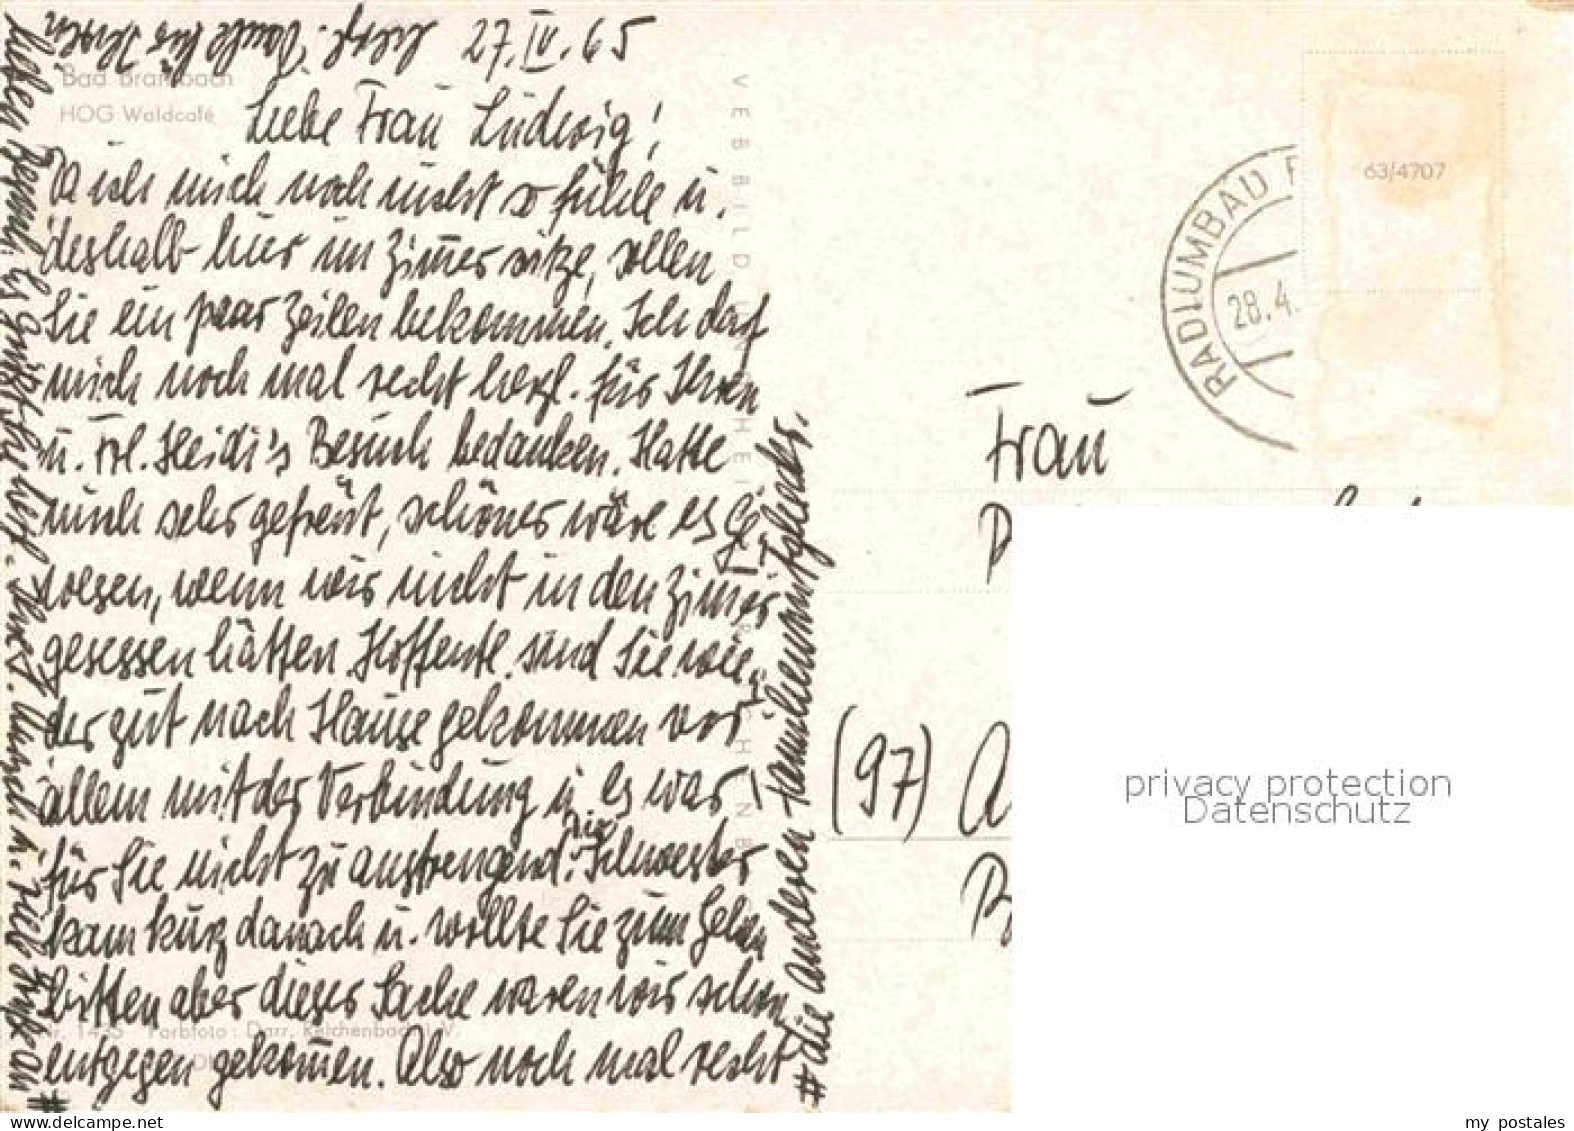 27.IV.65
Bad Brambach
HOG Waldcafé
Liebe Frau Ludwig!
Da ich mich noch nicht so fühle u.
deshalb hier im Zimmer sitze, sollen
Sie ein paar Zeilen bekommen. Ich darf
mich noch mal recht herzl. für Ihren
u. Frl. Heidi's Besuch bedanken. Hatte
mich sehr gefreut, schöner wäre es ge-
wesen, wenn wir nicht in den Zimmer
gesessen hätten. Hoffentl. sind Sie wie-
der gut nach Hause gekommen vor
allem mit der Verbindung u. es war
für Sie nicht zu anstrengend. Die Schwester
kam kurz danach u. wollte Sie zum Gehen
bitten aber dieser Sache waren wir schon
entgegen gekommen. Also noch mal recht
herzl. Danke für Ihren
lieben Besuch. Es grüßt Sie
# die anderen Familienmitglieder.
VEB BILD UND HEIMAT REICHENBACH
Farbfoto: Darr, Reichenbach i. V.
RADIUMBAD
28.4.
63/4707
Frau
(97) A
privacy protection
Datenschutz
my postales
www.delcampe.net